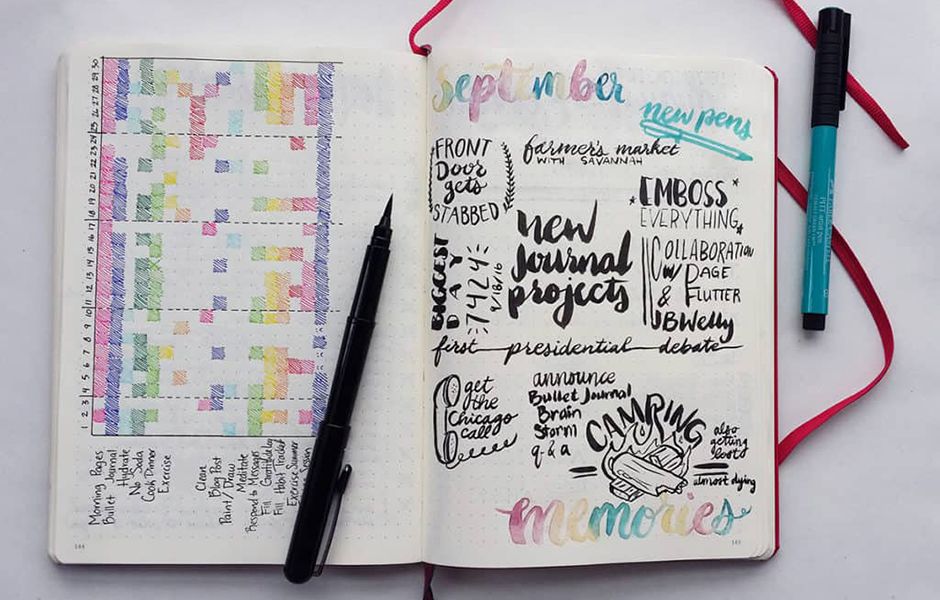 30
29
28
27
26
25
24
23
22
21
20
19
18
17
16
15
14
13
12
11
10
9
8
7
6
5
4
3
2
1
Morning Pages
Bullet Journal
Hydrate
No Soda
Cook Dinner
Exercise
Clean
Blog Post
Paint/Draw
Meditate
Respond to Messages
144
september
new pens
FRONT
Door
gets
STABBED
farmer's market
WITH SAVANNAH
EMBOSS
EVERYTHING
new
journal
projects
BIGGEST
DAY
7424
9/18/16
COLLABORATION
w/ PAGE
& FLUTTER
JBWelly
first presidential debate
get
the
Chicago
call
announce
Bullet Journal
Brain
Storm
q & a
CAMPING
also
getting
boots
almost dying
memories
145